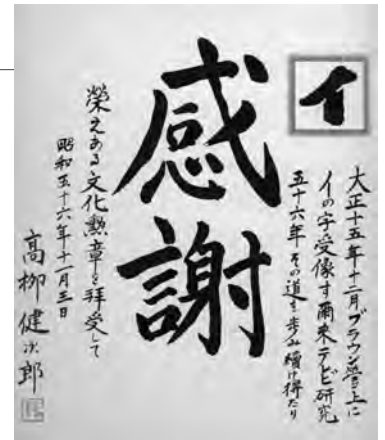 イ
大正十五年十二月ブラウン管上に
イの字受像す爾来テレビ研究
五十六年その道を歩み続け得たり
感謝
榮えある文化勲章を拝受して
昭和五十六年十一月三日
高柳健次郎